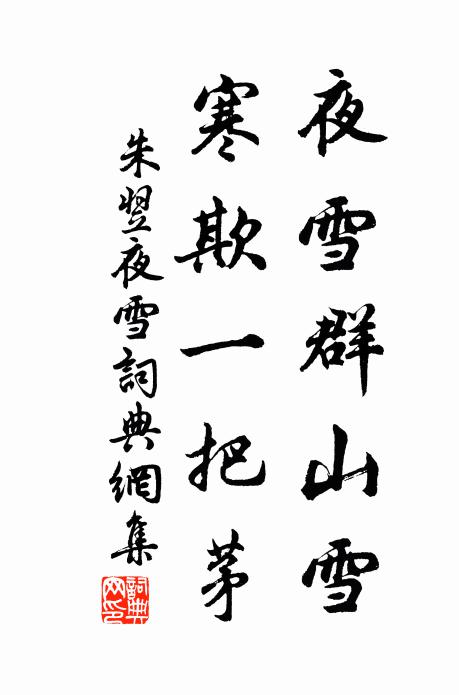 夜雪群山雪
寒欺一把茅
朱翌夜雪詞典網集
詞典
网印